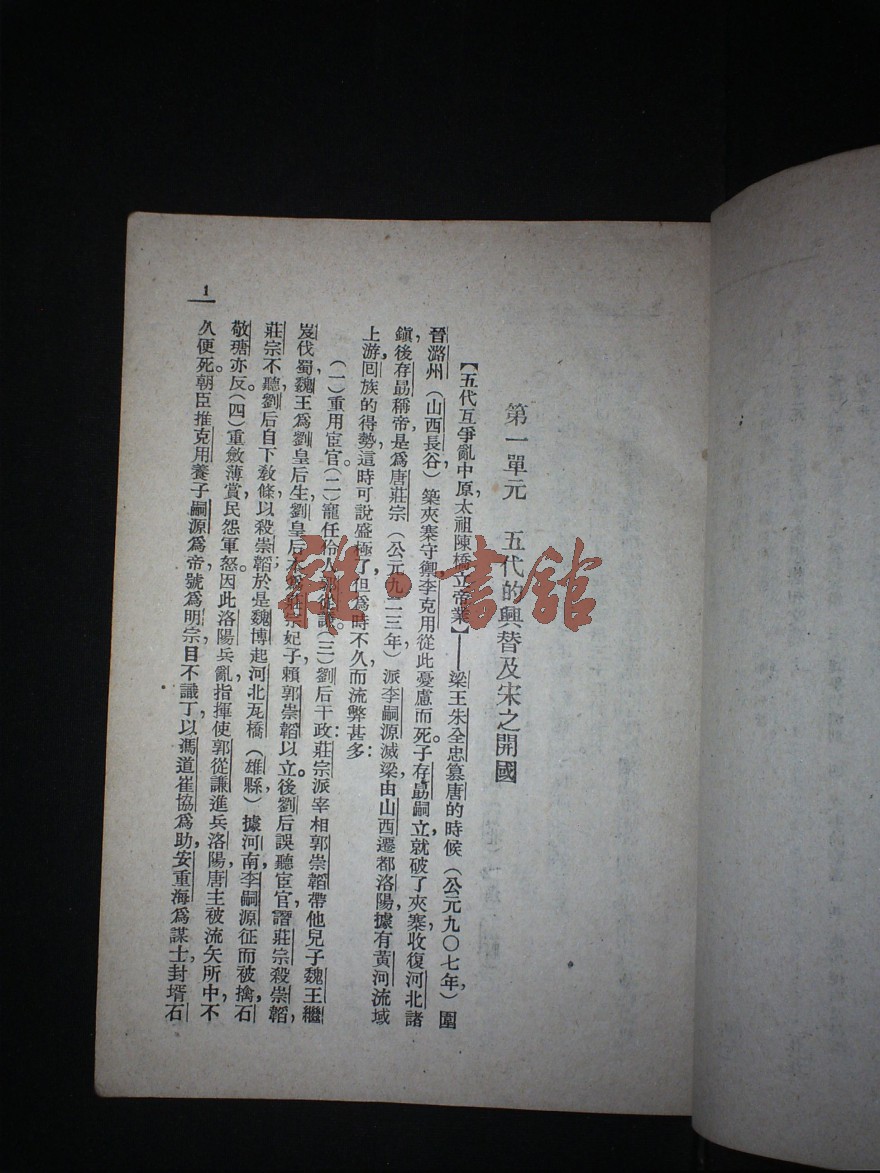 第一單元　五代的興替及宋之開國
【五代互爭亂中原，太祖陳橋立帝業】——梁王朱全忠篡唐的時候（公元九〇七年），圍
晉潞州（山西長谷），築夾寨守禦李克用從此憂慮而死。子存勗嗣立就破了夾寨，收復河北諸
鎮後存勗稱帝，是爲唐莊宗（公元九二三年）派李嗣源滅梁，由山西遷都洛陽，據有黃河流域
上游，回族的得勢，這時可說盛極了，但爲時不久，而流弊甚多：
（一）重用宦官。（二）寵任伶人郭從謙。（三）劉后干政，莊宗派宰相郭崇韜帶他兒子魏王繼
岌伐蜀，魏王爲劉皇后生，劉皇后本爲莊宗妃子，賴郭崇韜以立。後劉后誤聽宦官，譖莊宗殺崇韜，
莊宗不聽，劉后自下敎條以殺崇韜；於是魏博起河北瓦橋（雄縣）據河南，李嗣源征而被擒，石
敬瑭亦反。（四）重斂薄賞，民怨軍怒。因此洛陽兵亂，指揮使郭從謙進兵洛陽，唐主被流矢所中，不
久便死。朝臣推克用養子嗣源爲帝，號爲明宗，目不識丁，以馮道崔協爲助，安重海爲謀士，封壻石
1
雜·書館